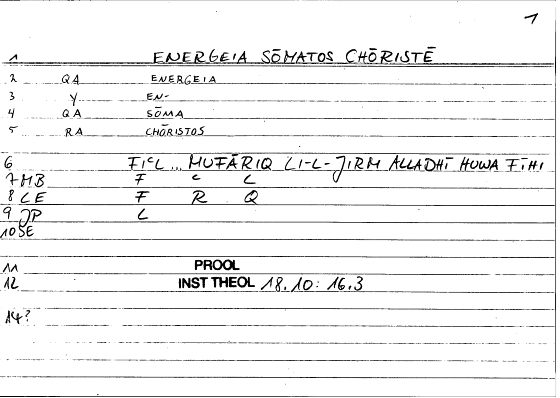 1
1 ENERGEIA SŌMATOS CHŌRISTĒ
2 QA ENERGEIA
3 Y EN-
4 QA SŌMA
5 RA CHŌRISTOS
6 FIᶜL ... MUFĀRIQ LI-L-JIRM ALLADHĪ HUWA FĪHI
7 MB F ᶜ L
8 LE F R Q
9 JP L
10 SE
11 PROOL
12 INST THEOL 18.10: 16.3
14?